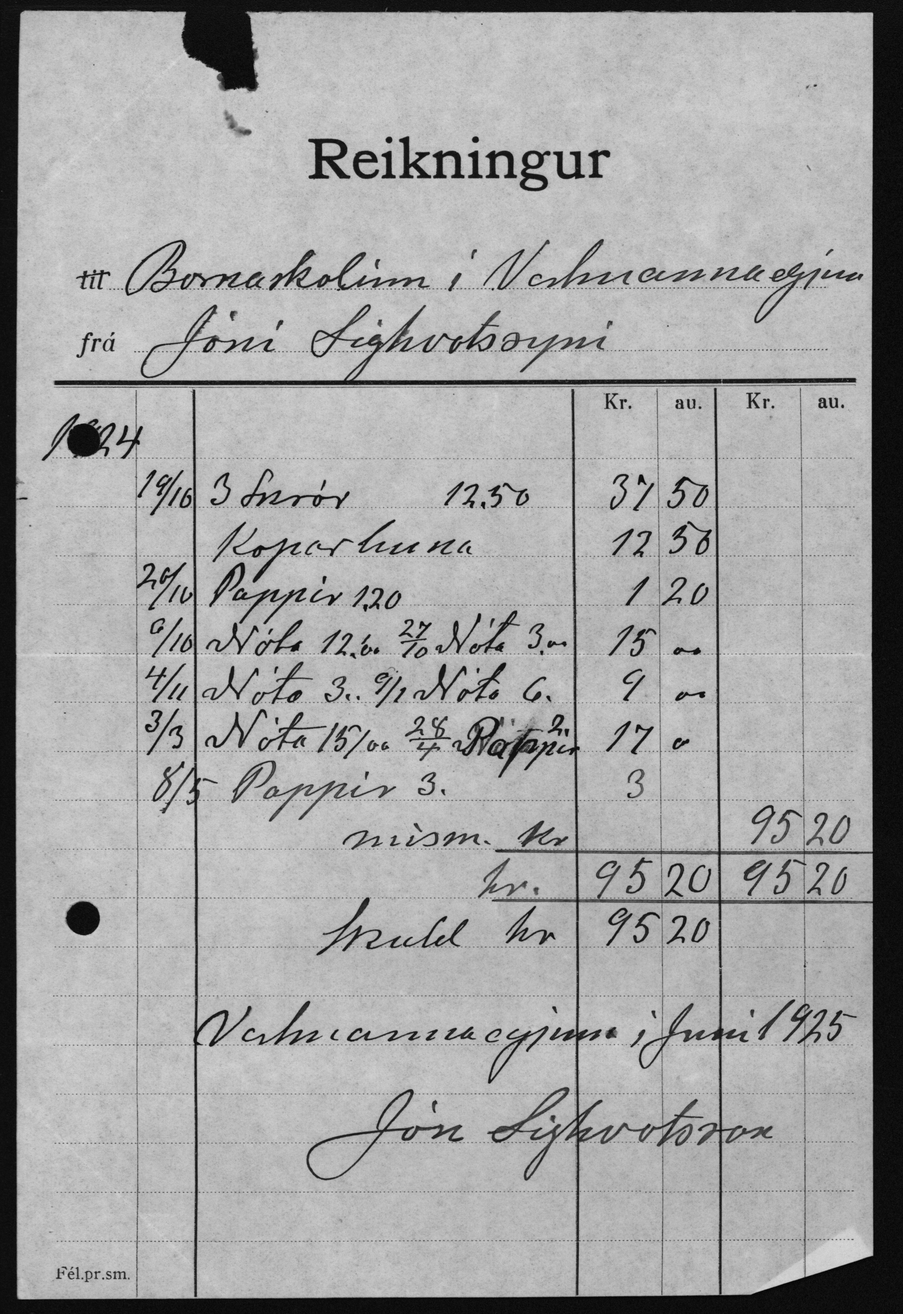 Reikningur
til Barnaskolinn i Vestmannaeyjum
frá Jóni Sighvatssyni
Kr. au. Kr. au.
1924
19/10 3 Skrár 12.50 37 50
Koparhuna 12 50
20/10 Pappir 1.20 1 20
6/10 Nóta 12.00 27/10 Nóta 3.00 15 00
4/11 Nóta 3.. 9/1 Nóta 6. 9 00
3/3 Nóta 15/00 28/4 Pappir 2. 17 0
8/5 Pappir 3. 3
mism. kr 95 20
kr. 95 20 95 20
Skuld kr 95 20
Vestmannaeyjum i Juni 1925
Jón Sighvatsson
Fél.pr.sm.